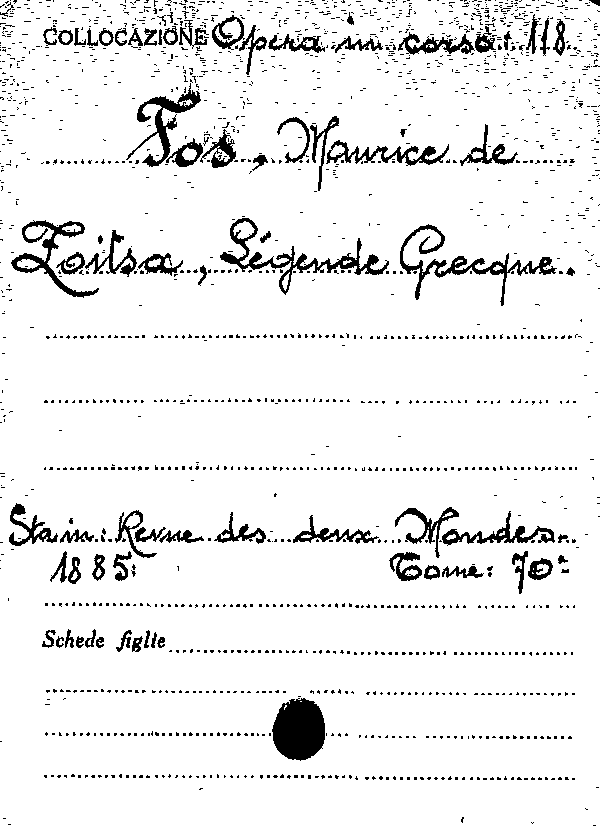 COLLOCAZIONE Opera in corso: 118.
Fos, Maurice de
Zoitsa, Légende Grecque.
Sta in: Revue des deux Mondes.
1885: Tome: 70°
Schede figlie